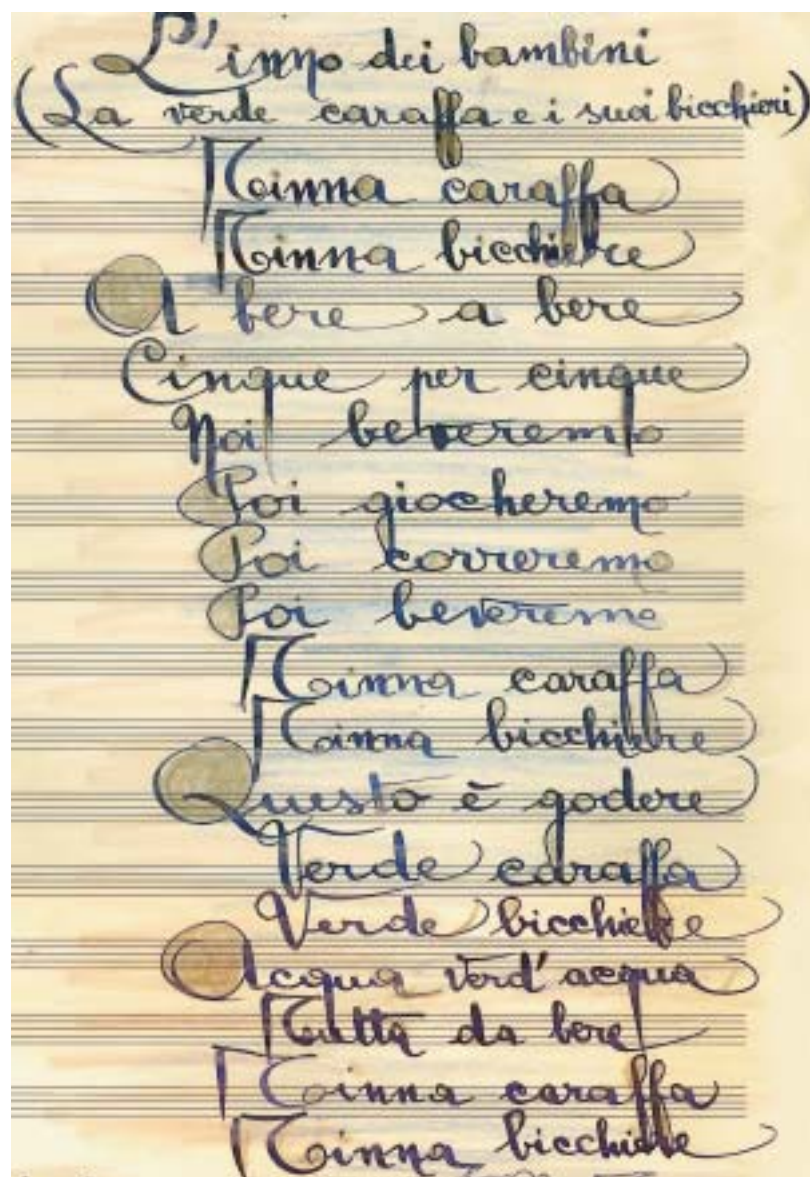 L'inno dei bambini
(La verde caraffa e i suoi bicchieri)
Tinna caraffa
Tinna bicchiere
A bere a bere
Cinque per cinque
Noi beveremo
Poi giocheremo
Poi correremo
Poi beveremo
Tinna caraffa
Tinna bicchiere
Questo è godere
Verde caraffa
Verde bicchiere
Acqua verd'acqua
Tutta da bere
Tinna caraffa
Tinna bicchiere